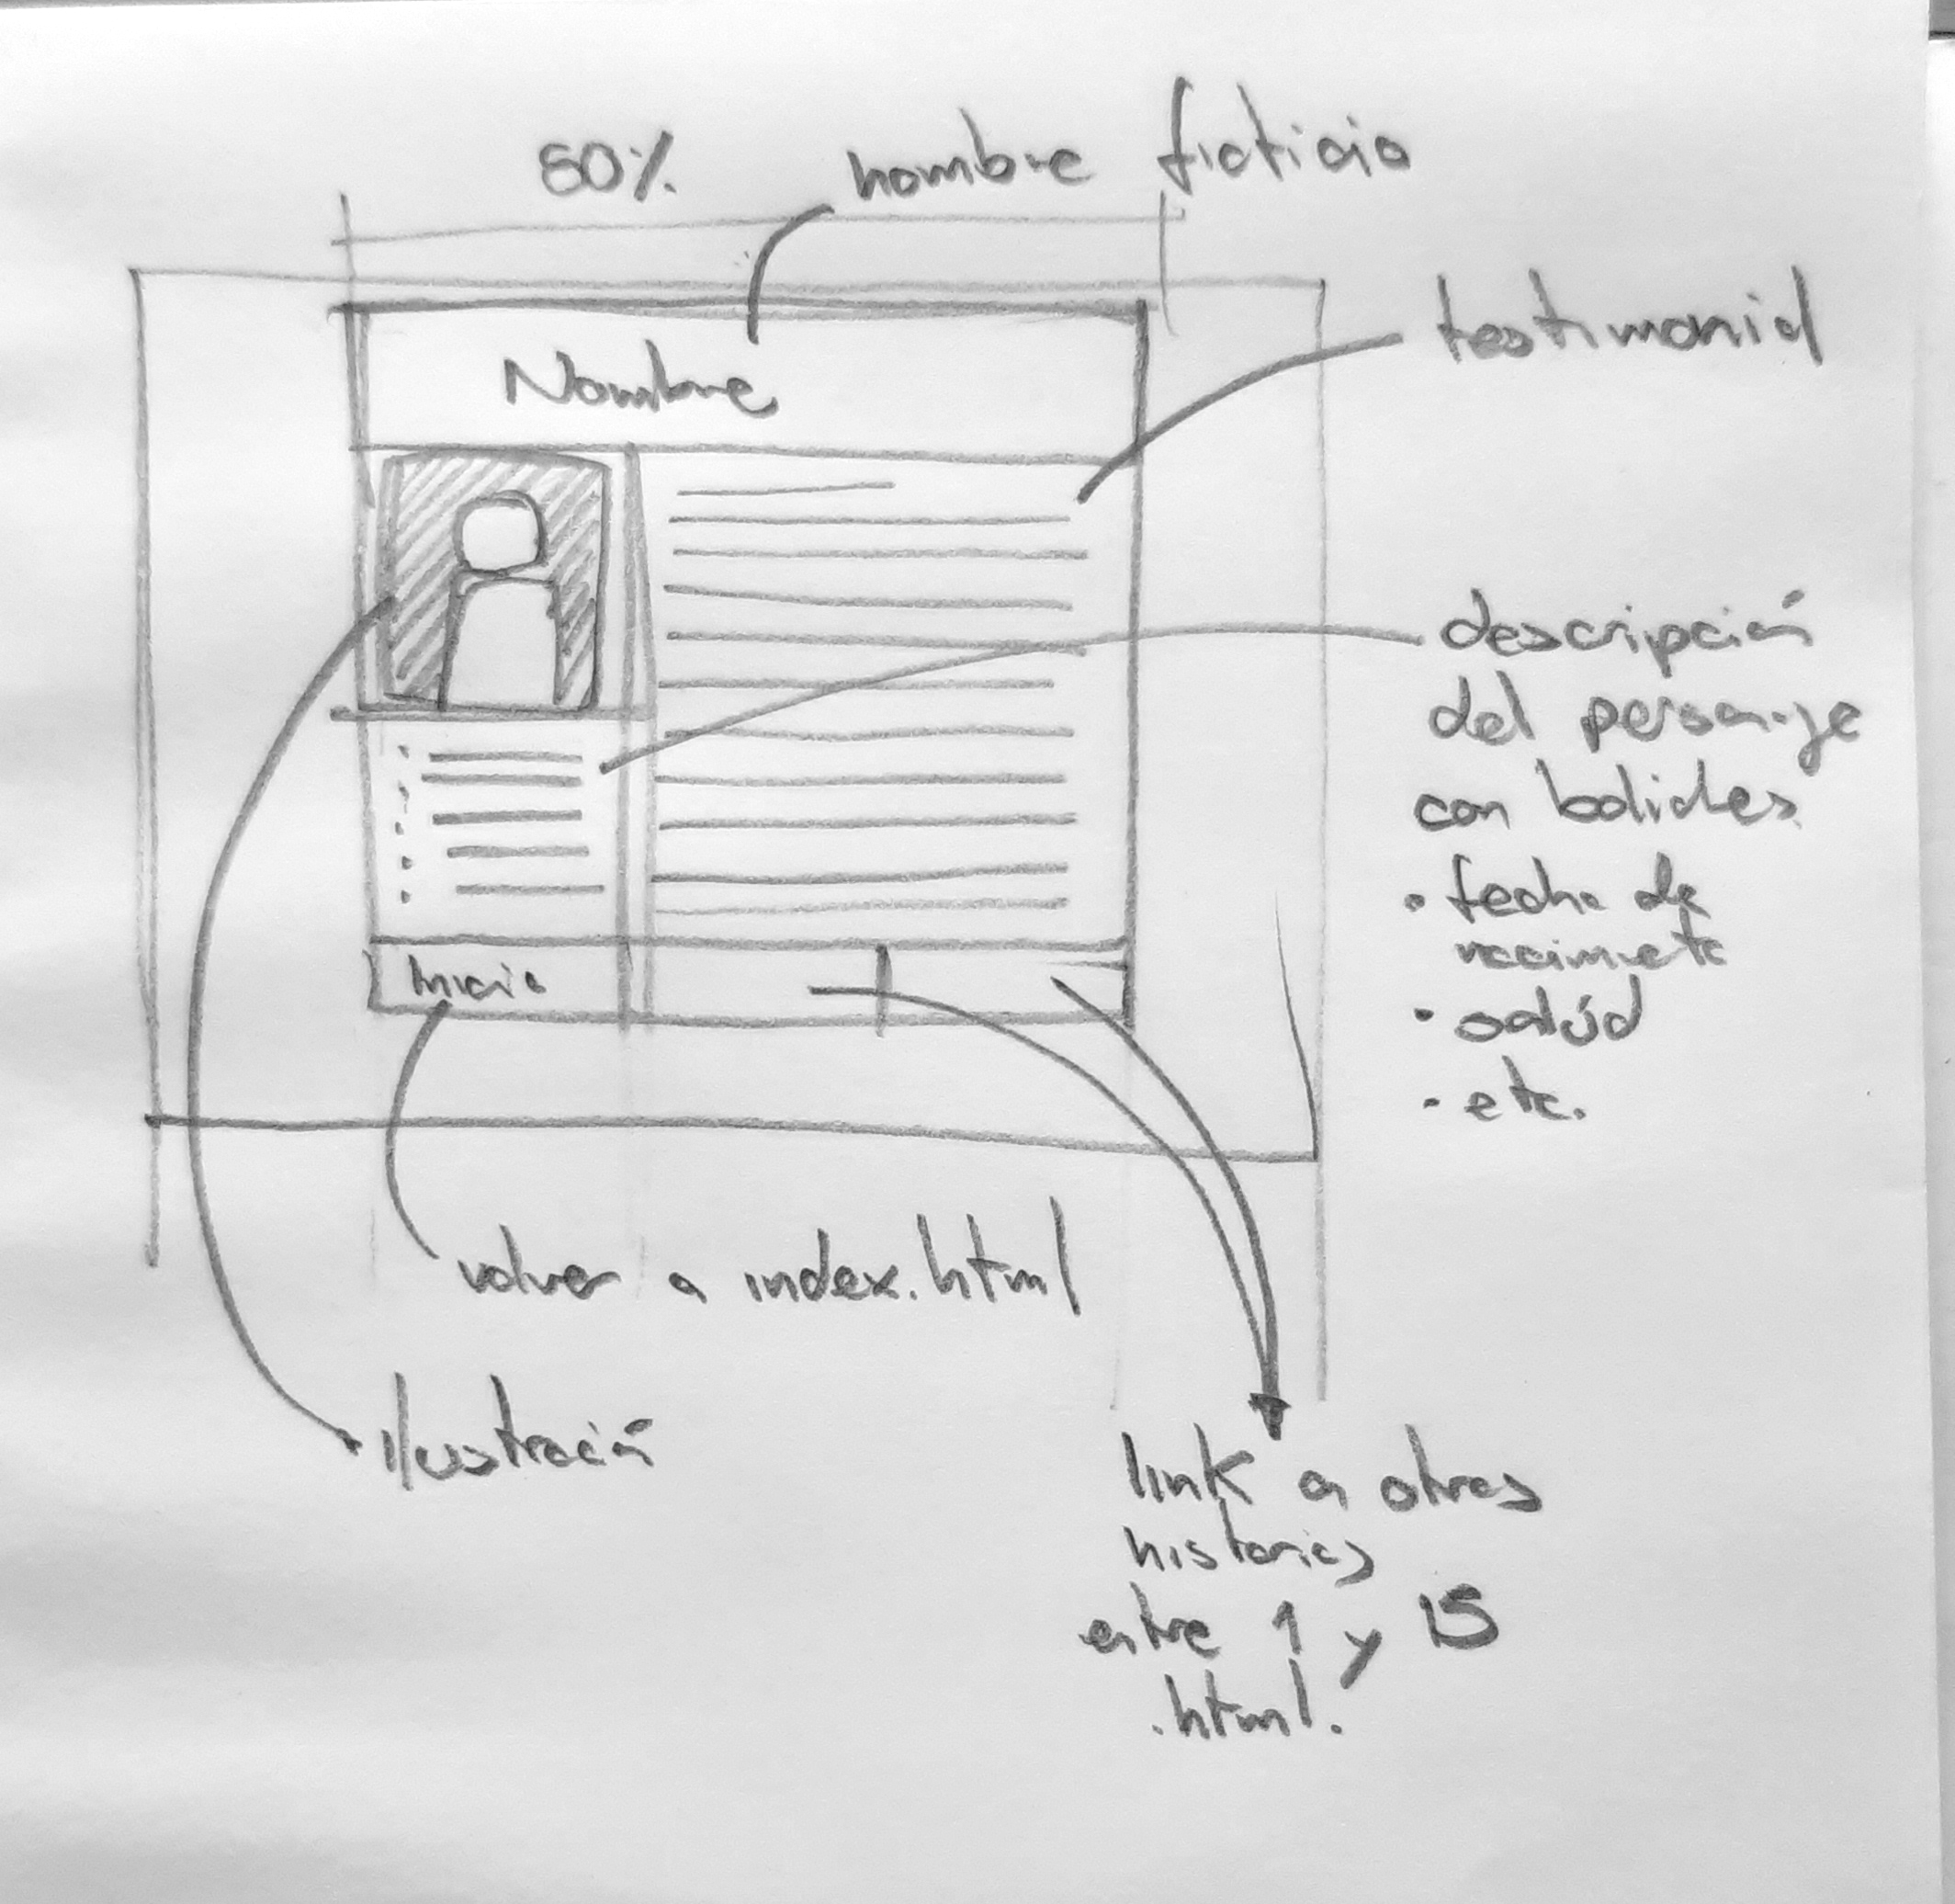 80%
nombre ficticio
Nombre
testimonial
descripción
del personaje
con bolides
• fecha de
nacimiento
• salúd
• etc.
Inicio
volver a index.html
ilustración
link a otras
historias
entre 1 y 15
.html.